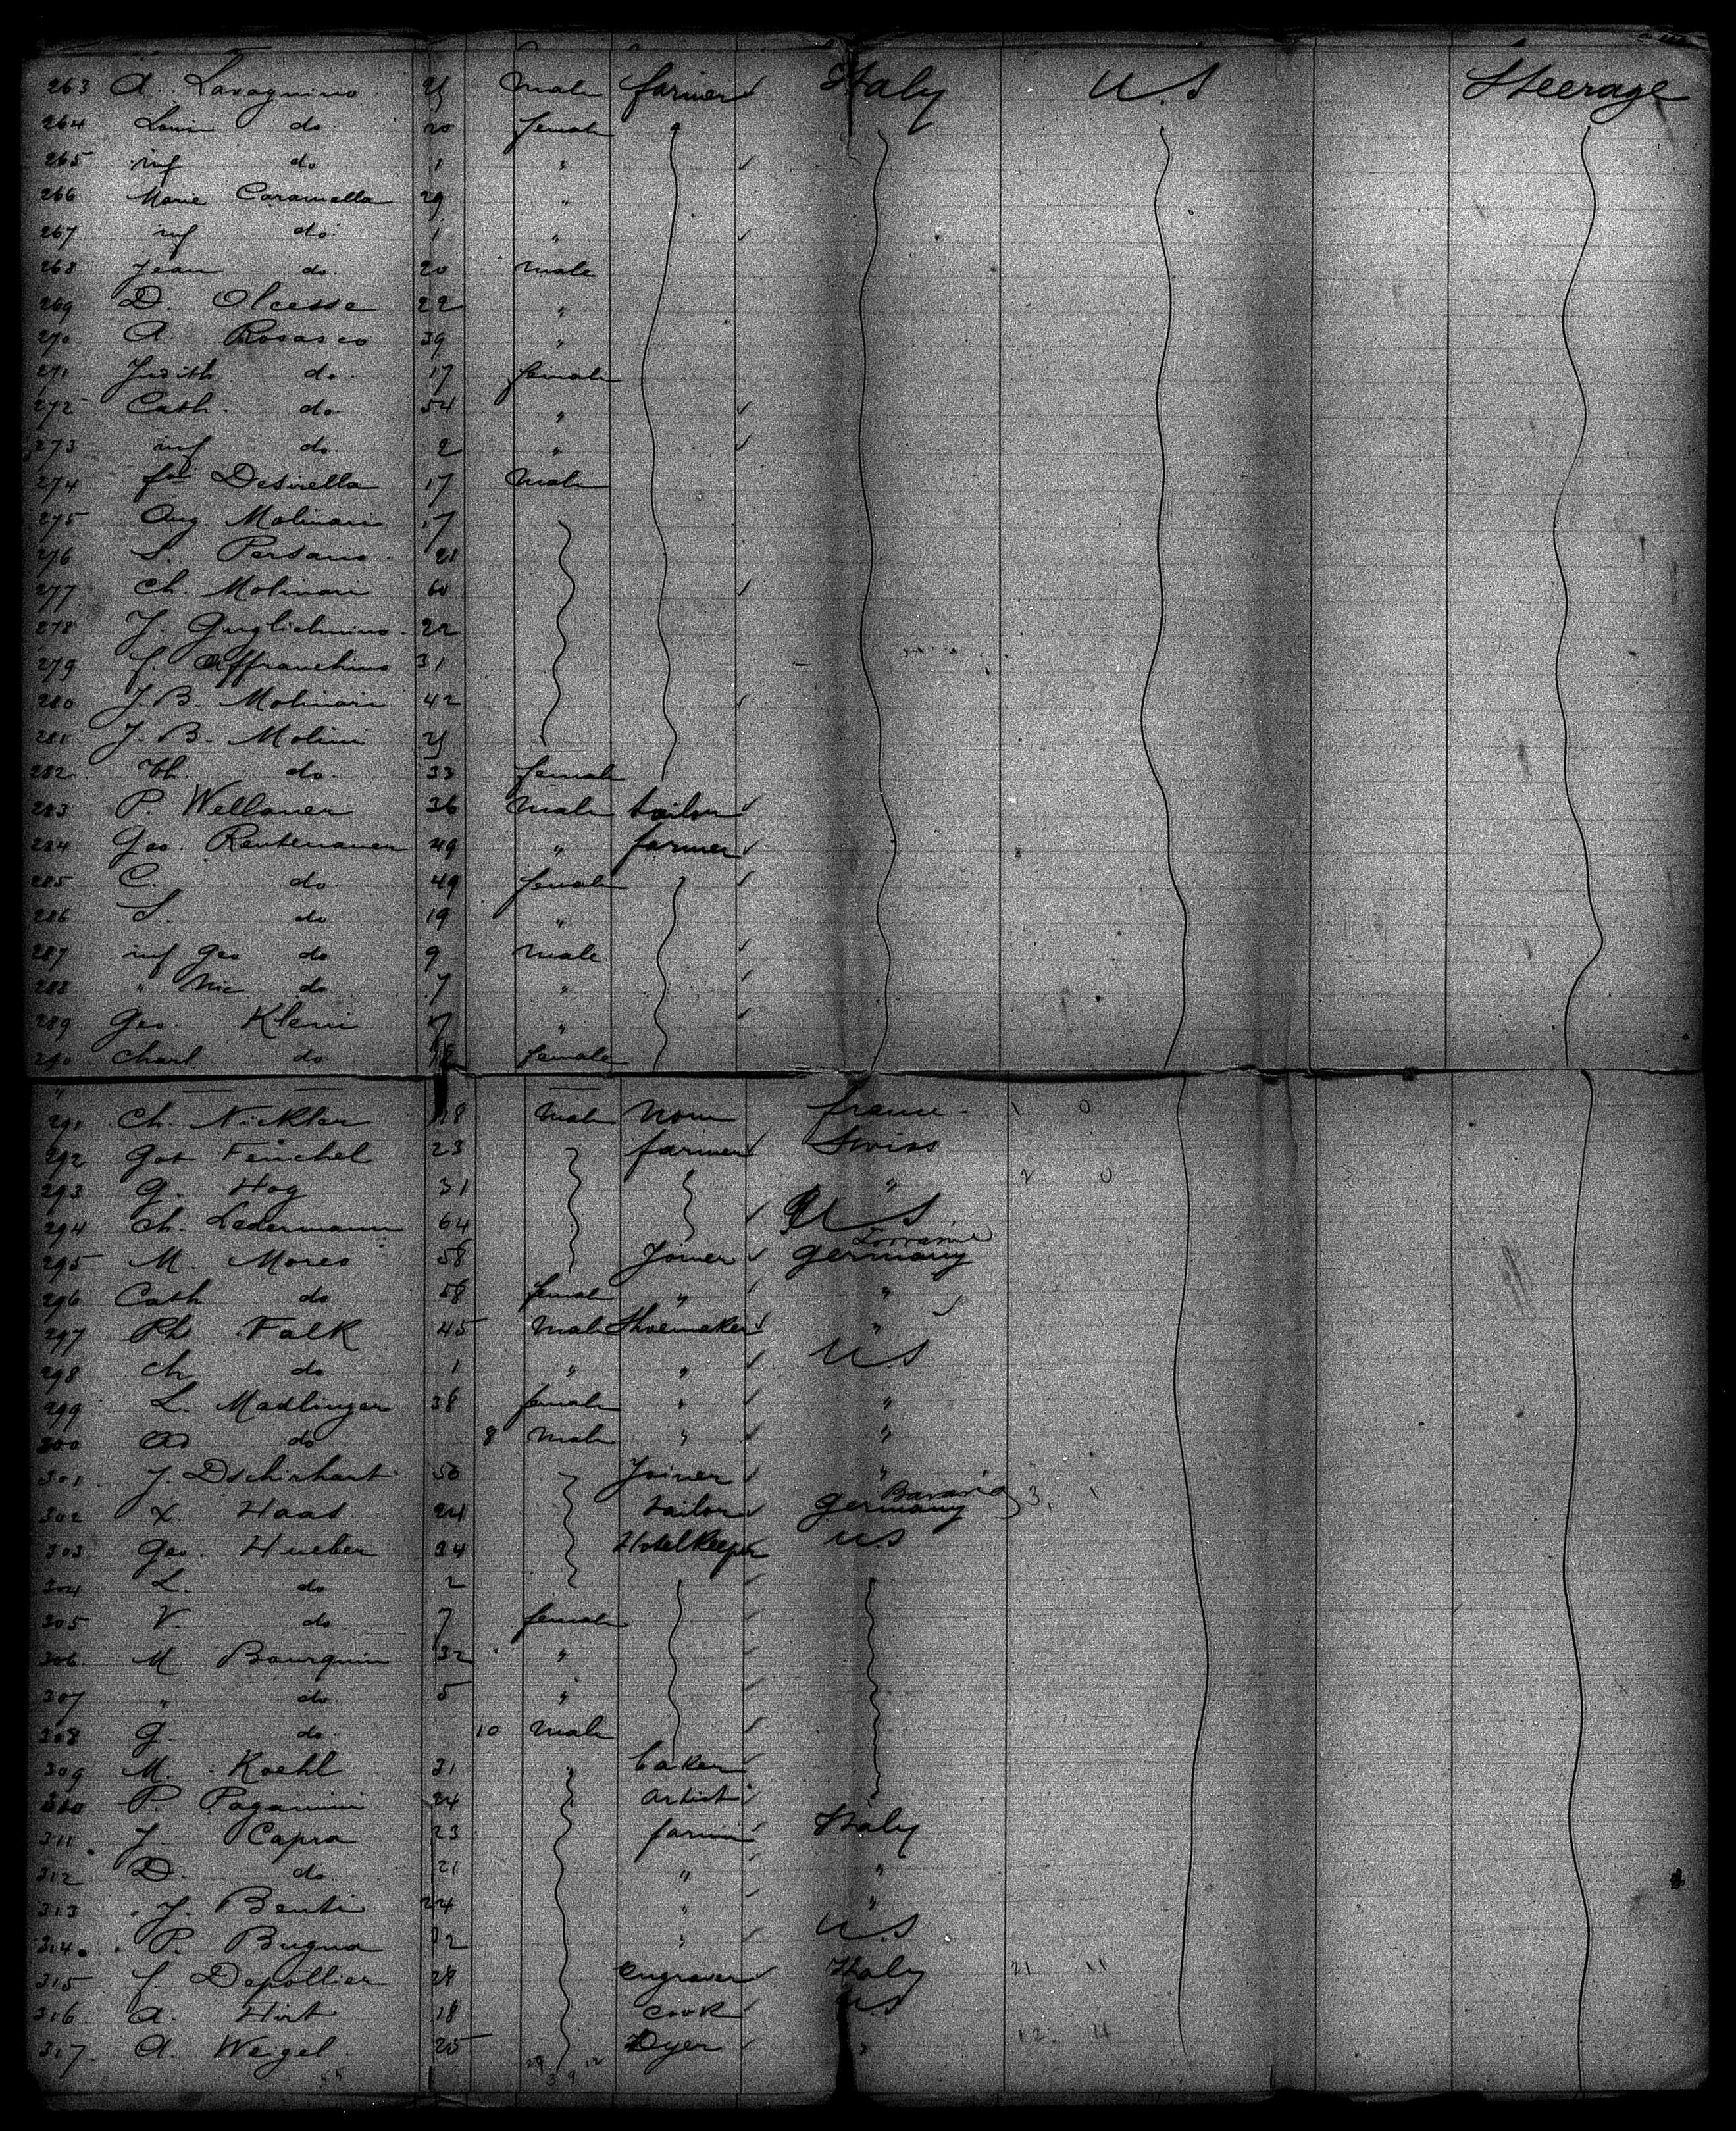 263 A. Lavagnino 21 Male farmer Italy U.S Steerage
264 Louis do. 20 female
265 inf do 1 "
266 Marie Caramella 29 "
267 inf do 1 "
268 Jean do. 20 male
269 D. Olcesse 22 "
270 A. Rosasco 39 "
271 Judith do. 17 female
272 Cath. do 54 "
273 inf do. 2 "
274 Desirella 17 Male
275 Aug. Molinari 17
276 S. Persano 21
277 Ch. Molinari 60
278 J. Guglielmino 22
279 f. Affranchino 31
280 J. B. Molinari 42
281 J. B. Molini 21
282 do. 33 female
283 P. Wellauer 36 Male tailor
284 Geo. Rentenauer 49 " farmer
285 C. do. 49 female
286 S. do 19 "
287 inf Geo do 9 male
288 " Nic do 7 "
289 Geo. Klein "
290 Charl do female
291 Ch. Nickler 18 Male None france
292 Got Feuchel 23 farmer Swiss
293 G. Hog 31 " 2 0
294 Ch. Ledermann 64 U S
295 M. Mores 58 Joiner Germany Lorraine
296 Cath do 58 female " "
297 Ph Falk 45 Male Shoemaker "
298 Ch do 1 " " U S
299 L. Madlinger 38 female " "
300 Ad do 8 Male " "
301 J. Dschirhart 50 Joiner "
302 X. Haas 24 tailor Germany Bavaria 3 1
303 Geo. Hueber 34 Hotelkeeper U S
304 L. do 2
305 V. do 7 female
306 M Bourquin 32 "
307 " do. 5 "
308 G. do. 10 Male
309 M. Koehl 31 " baker
310 P. Paganini 24 artist
311 J. Capra 23 farmer Italy
312 D. do. 21 " "
313 J. Benti 24 " "
314 P. Bugna 32 " U. S
315 f. Depollier 28 engraver Italy 21 11
316 A. Hirt 18 cook U S
317 A. Weigel 25 Dyer " 12 4